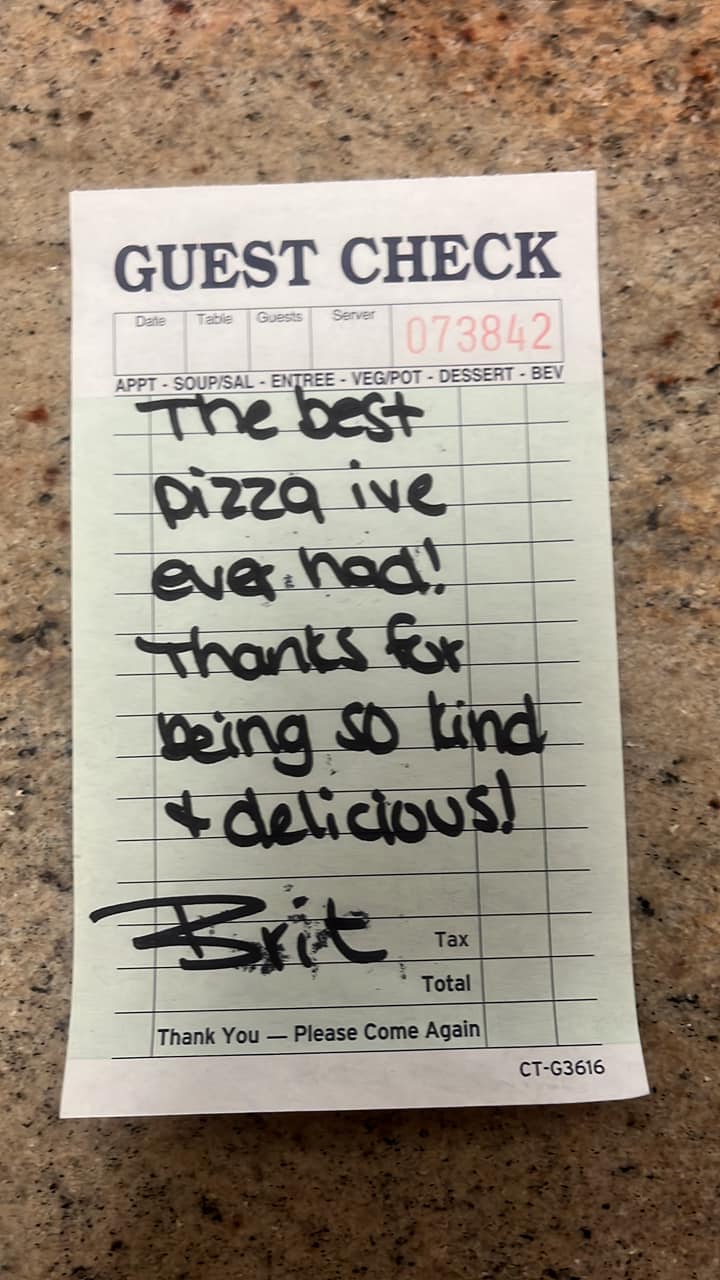 GUEST CHECK
Date Table Guests Server 073842
APPT - SOUP/SAL - ENTREE - VEG/POT - DESSERT - BEV
The best
pizza ive
ever had!
Thanks for
being so kind
& delicious!
Brit
Tax
Total
Thank You — Please Come Again
CT-G3616